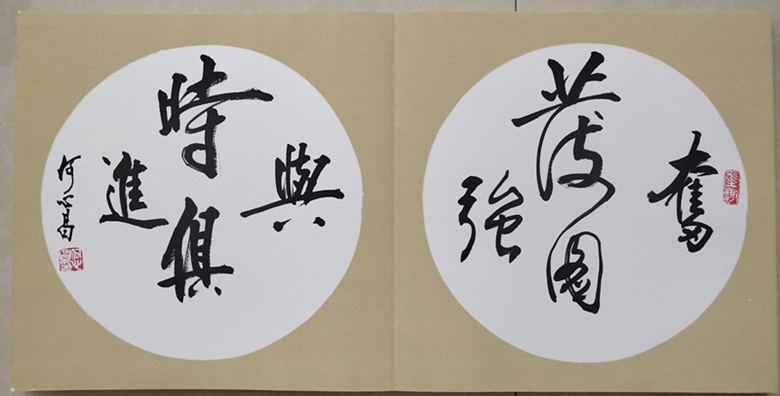 奮
發圖
強
與
時俱
進
何心